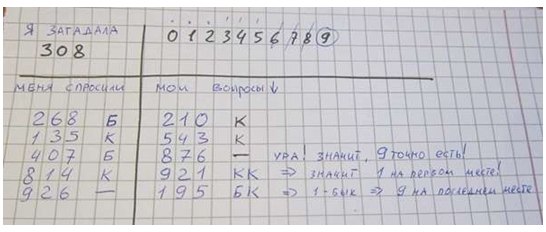 Я ЗАГАДАЛА
308
0 1 2 3 4 5 6 7 8 9
МЕНЯ СПРОСИЛИ
МОИ ВОПРОСЫ ↓
268 Б
210 К
135 К
543 К
407 Б
876 — УРА! ЗНАЧИТ, 9 ТОЧНО ЕСТЬ!
814 К
921 КК ⇒ ЗНАЧИТ 1 НА ПЕРВОМ МЕСТЕ!
926 —
195 БК ⇒ 1-БЫК ⇒ 9 НА ПОСЛЕДНЕМ МЕСТЕ